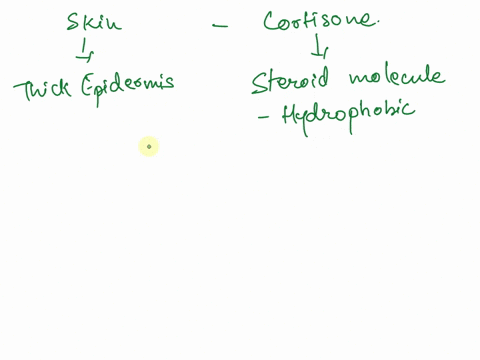 Skin - Cortisone.
Thick Epidermis Steroid molecule
- Hydrophobic